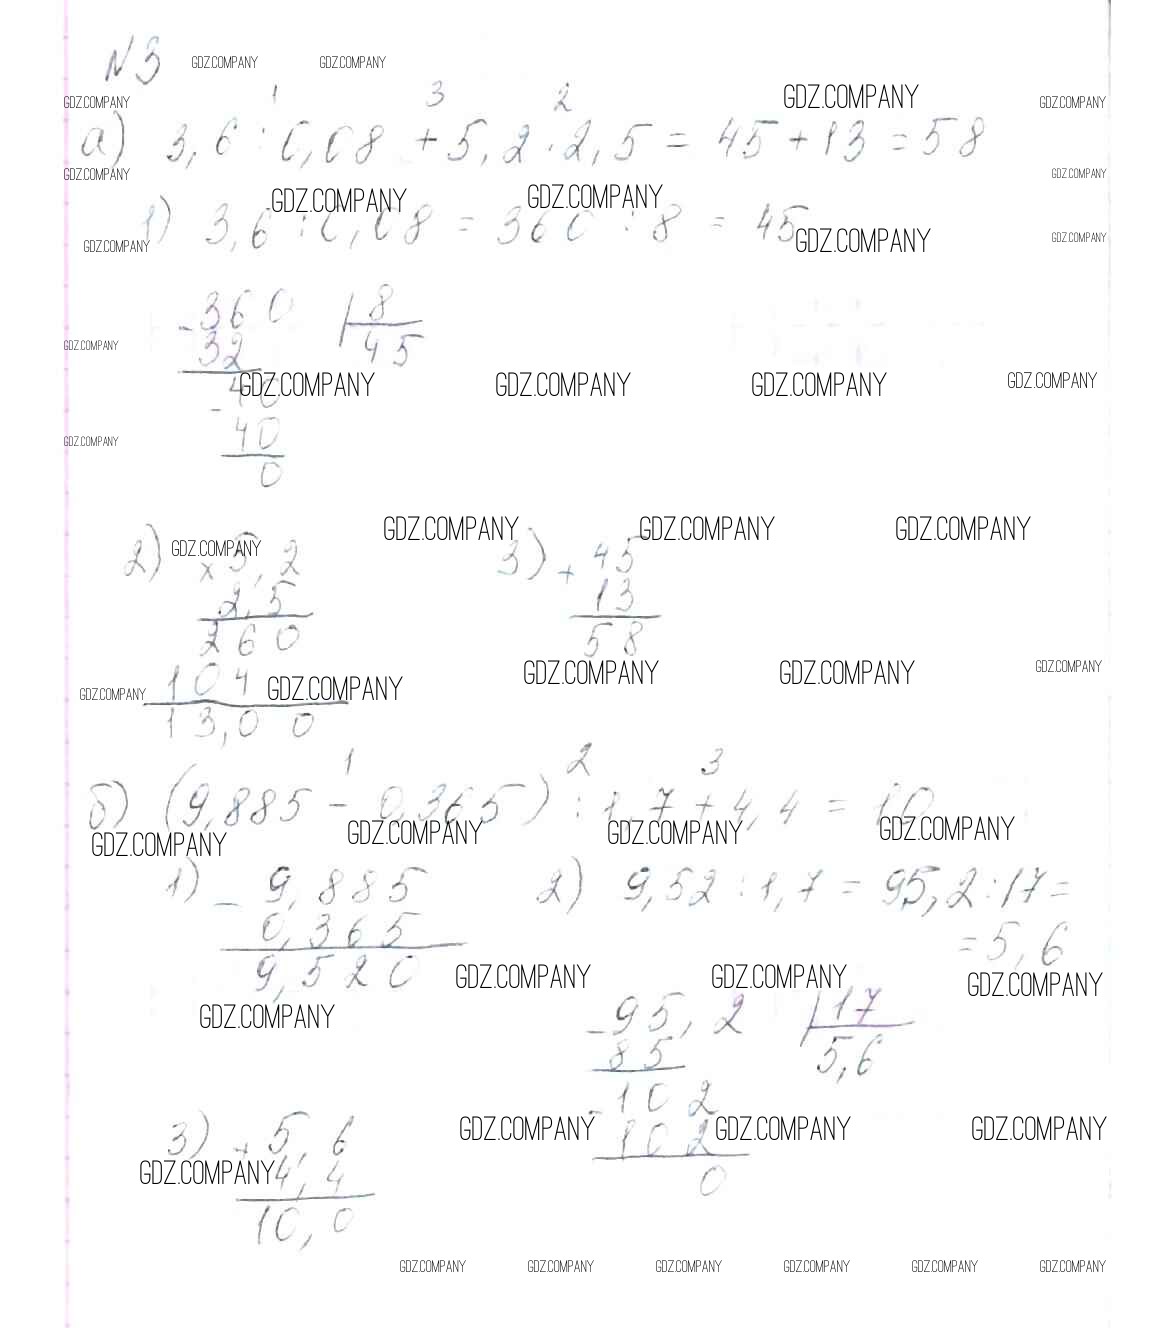 N3
GDZ.COMPANY GDZ.COMPANY
1 3 2
GDZ.COMPANY GDZ.COMPANY GDZ.COMPANY
а) 3,6 : 0,08 + 5,2 · 2,5 = 45 + 13 = 58
GDZ.COMPANY GDZ.COMPANY
GDZ.COMPANY GDZ.COMPANY
1) 3,6 : 0,08 = 360 : 8 = 45
GDZ.COMPANY GDZ.COMPANY GDZ.COMPANY
- 360 | 8
32 45
GDZ.COMPANY
GDZ.COMPANY GDZ.COMPANY GDZ.COMPANY GDZ.COMPANY
- 40
40
GDZ.COMPANY
0
GDZ.COMPANY GDZ.COMPANY GDZ.COMPANY
2) × 5,2 3) + 45
GDZ.COMPANY
2,5 13
260 58
GDZ.COMPANY GDZ.COMPANY GDZ.COMPANY
104
GDZ.COMPANY GDZ.COMPANY
13,00
1 2 3
б) (9,885 - 0,365) : 1,7 + 4,4 = 10
GDZ.COMPANY GDZ.COMPANY GDZ.COMPANY GDZ.COMPANY
1) - 9,885 2) 9,52 : 1,7 = 95,2 : 17 =
0,365 = 5,6
9,520
GDZ.COMPANY GDZ.COMPANY GDZ.COMPANY
GDZ.COMPANY
- 95,2 | 17
85 5,6
- 102
GDZ.COMPANY GDZ.COMPANY GDZ.COMPANY
102
0
3) + 5,6
GDZ.COMPANY
4,4
10,0
GDZ.COMPANY GDZ.COMPANY GDZ.COMPANY GDZ.COMPANY GDZ.COMPANY GDZ.COMPANY